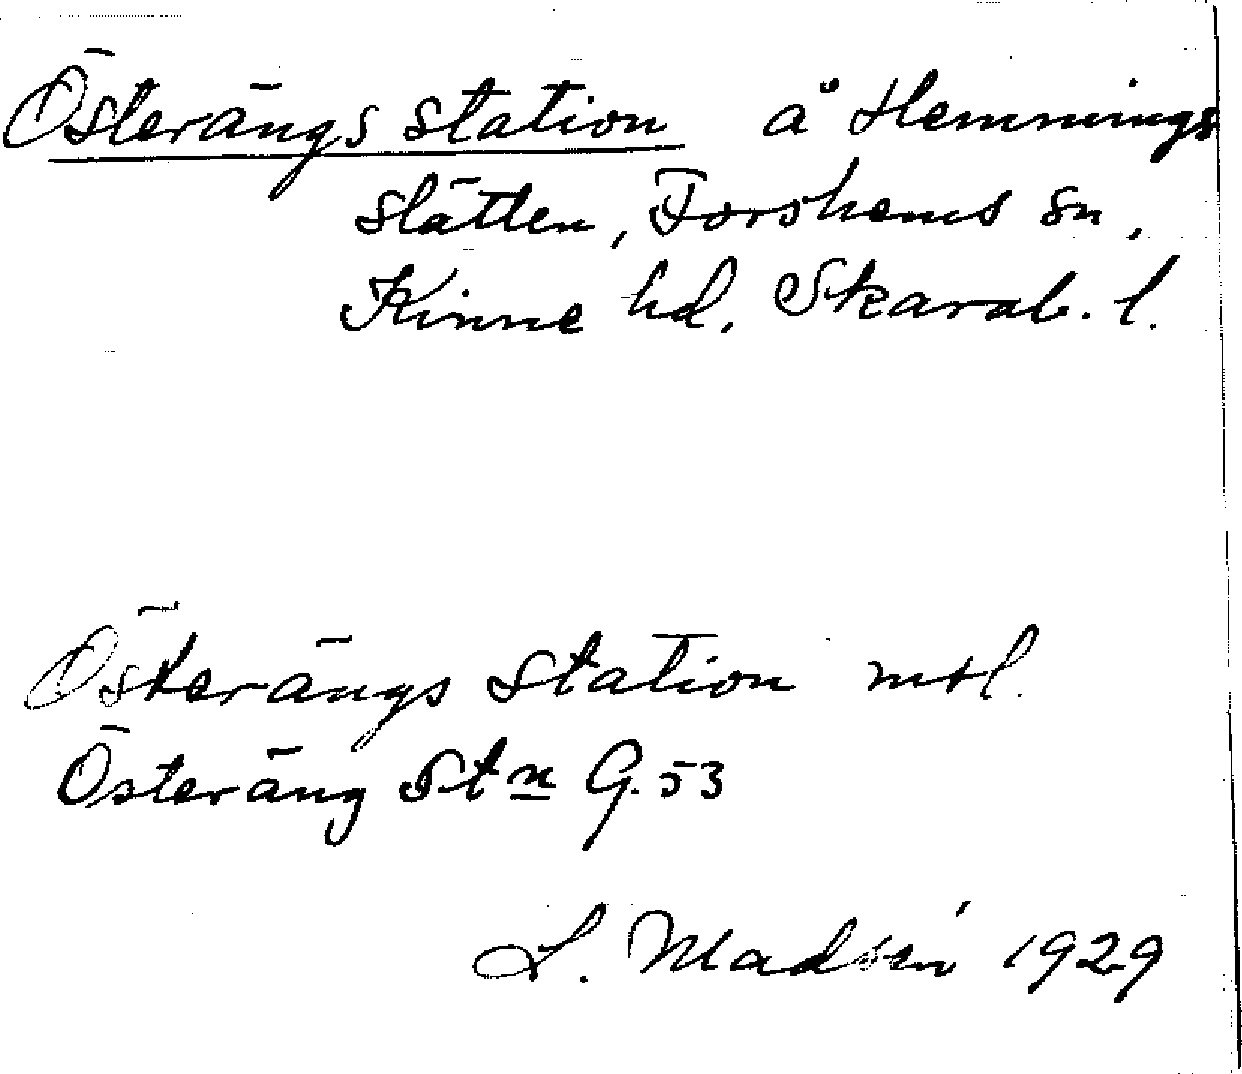 Österängs station å Hemmings
slätten, Forshems sn,
Kinne hd, Skarab. l.
Österängs Station mtl.
Österäng Stn G. 53
L. Madsén 1929